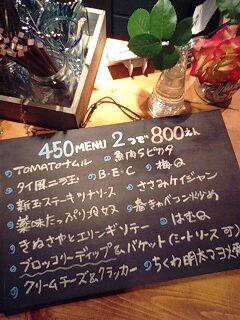 450 MENU 2つで 800えん
TOMATOナムル 魚肉らピカタ
タイ風ニラ玉 B・E・C 梅Q
新玉ステーキツナソース ささみケイジャン
薬味たっぷり 春キャベコンバタ炒め
きぬさやとエリンギソテー はむQ
ブロッコリーディップ&バケット(ミートソース可)
クリームチーズ&クラッカー ちくわ明太マヨ